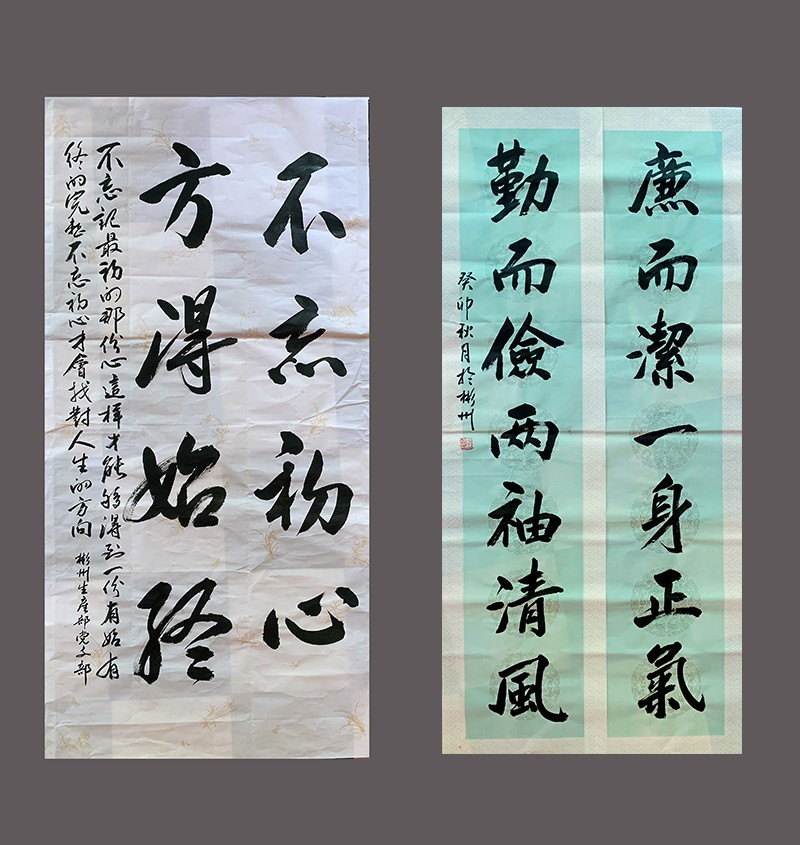 不忘初心
方得始終
不忘記最初的那份心這样才能够得到一份有始有
終的完整不忘初心才會找對人生的方向
彬州生產部党支部
廉而潔一身正氣
勤而儉两袖清風
癸卯秋月於彬州